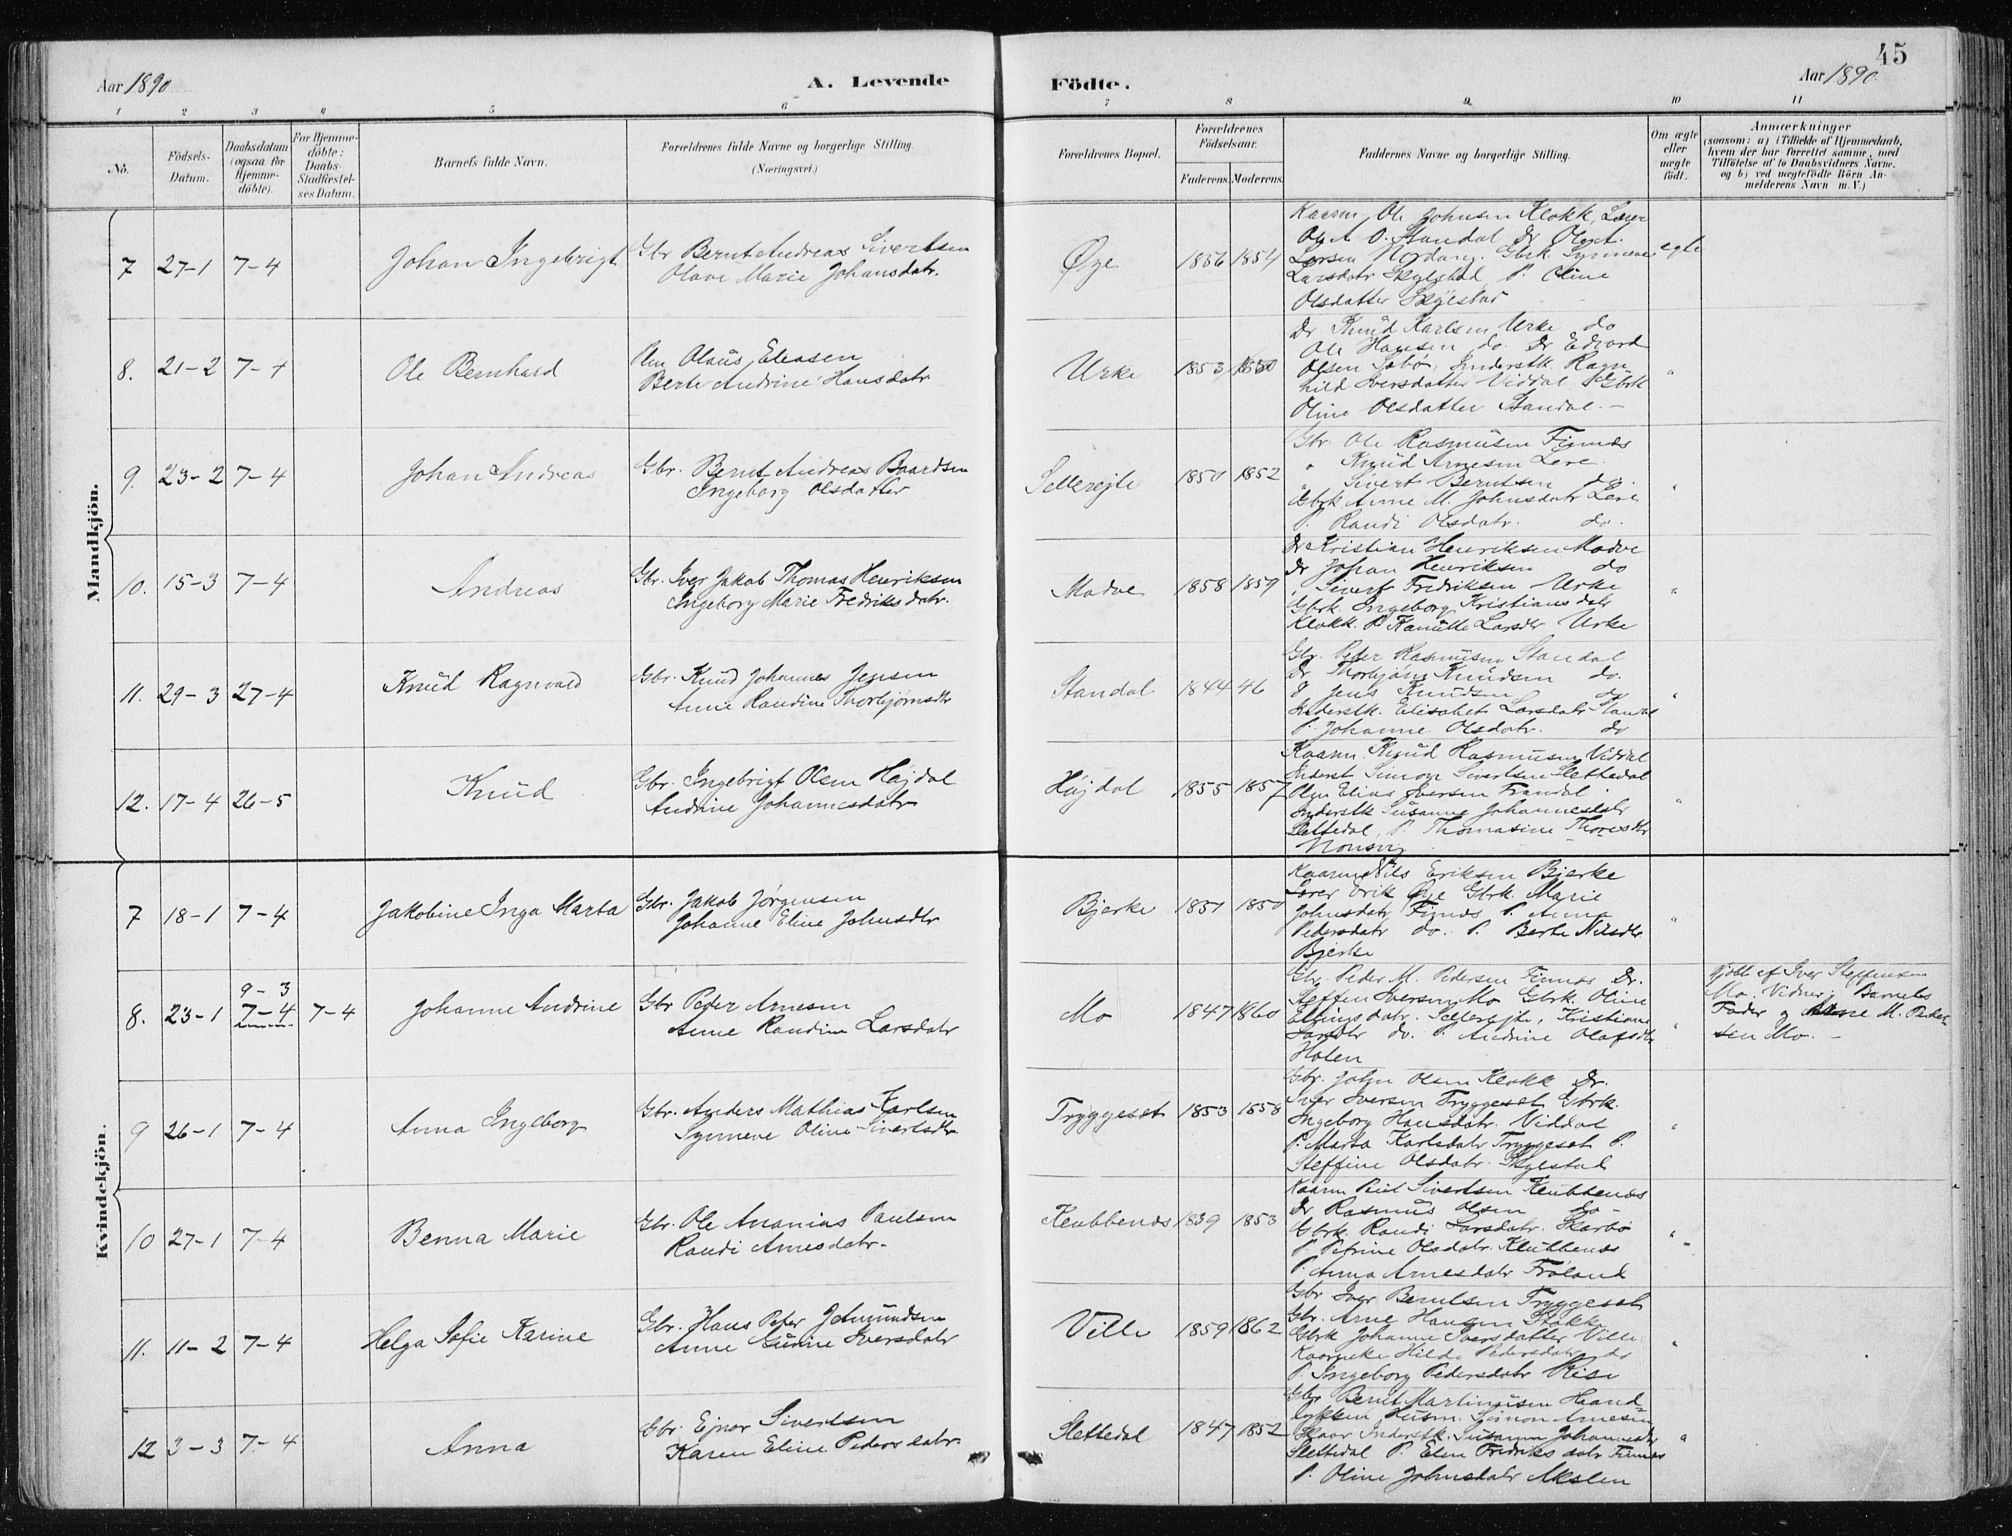 45
Aar 1890
A. Levende
Födte.
Aar 1890
1 2 3 4 5 6 7 8 9 10 11
No.
Födsels-
Datum.
Daabsdatum
(ogsaa for
Hjemme-
döbte).
For Hjemme-
döbte:
Daabs-
Stadfæstel-
ses Datum.
Barnets fulde Navn.
Forældrenes fulde Navne og borgerlige Stilling.
(Næringsvei.)
Forældrenes Bopæl.
Forældrenes
Födselsaar.
Faderens. Moderens.
Faddernes Navne og borgerlige Stilling.
Om ægte
eller
uægte
födt.
Anmærkninger
(saasom: a) i Tilfælde af Hjemmedaab,
hvem der har forrettet samme, med
Tilföielse af to Daabsvidners Navne,
og b) ved uægtefödte Börn An-
melderens Navn m. V.)
Mandkjön.
7 27-1 7-4
Johan Ingebrigt
Gbr Bernt Andreas Sivertsen
Olave Marie Johansdatr.
Øye
1856 1854
Kaarm. Ole Johnsen Klokk, Lærer
Ole A. O. Standal Dr Ole A.
Larsen Nordang. Gbrk. Synneve
Larsdatr Skylstad P. Oline
Olsdatter
egte
8. 21-2 7-4
Ole Bernhard
Olaus Eliasen
Berte Andrine Hansdatr
Urke
1853 1850
Dr Knud Karlsen Urke do
Ole Hansen do Dr Edvard
Olsen Sæbø, Inderstk. Ragn-
hild Iversdatter Viddal,
Oline Olsdatter Standal.
"
9. 23-2 7-4
Johan Andreas
Gbr. Bernt Andreas Baardsen
Ingeborg Olsdatter
Sellerejte
1850 1852
Gbr. Ole Rasmusen Finnæs
" Knud Arnesen Lere
" Sivert Berntsen do.
Gbrk Anne M. Johnsdatr Leve
P. Randi Olsdatr. do.
"
10. 15-3 7-4
Andreas
Gbr. Iver Jakob Thomas Henriksen
Ingeborg Marie Fredriksdatr.
Madve
1858 1859
Dr Kristian Henriksen Madve
Dr Johan Henriksen do
" Sivert Fredriksen Urke
Gbrk. Ingeborg Kristiansdatr
Klokk. P. Larsdtr Urke
"
11. 29-3 27-4
Knud Ragnvald
Gbr. Knud Johannes Jensen
Anne Randine Thorbjørnsdtr
Standal
1844 46
Gbr. Peter Rasmusen Standal
Dr Thorbjørn Knudsen do.
D Jens Knudsen do
Inderstk. Elisabet Larsdatr Standal
P. Johanne Olsdatr. do
"
12. 17-4 26-5
Knud
Gbr. Ingebrigt Olsen Højdal
Andrine Johannesdatr
Højdal
1855 1857
Kaarm. Knud Rasmusen Viddal
Inderst Simon Sivertsen Slettedal
Elias Iversen
Inderstk Susanne Johannesdatr
Slettedal, P. Thomasine Thoresdtr
"
Kvindekjön.
7 18-1 7-4
Jakobine Inga Marta
Gbr. Jakob Jørgensen
Johanne Eline Johnsdtr
Bjerke
1851 1850
Kaarm Nils Eriksen Bjerke
Lærer Erik Øye Gbrk. Marie
Johnsdatr, Finnes P. Anna
Pedersdatr do. P. Berte Nilsdtr
Bjerke
"
8. 23-1 9-3
7-4 7-4
Johanne Andrine
Gbr Peder Arnesen
Anne Randine Larsdatr
Mo
1847 1860
Gbr Peder M. Pedersen Finnes Dr.
Steffen Iversen Mo Gbrk. Oline
Ellingsdatr. Sellerejte, Kristiane
Larsdtr do. P. Andrine Olafsdtr
Holen
"
hjdbt af Iver Steffensen
Mo. Vidner: Barnets
Fader og M. Peder-
sen Mo.
9 26-1 7-4
Anna Ingeborg
Gbr. Anders Mathias Karlsen
Synneve Oline Sivertsdtr.
Tryggeset
1853 1858
Gbr. John Olsen Klokk Dr.
Iver Iversen Tryggeset Gbrk.
Ingeborg Hansdatr. Viddal
P. Marta Karlsdatr Tryggeset P.
Steffine Olsdatr. Skylstad
"
10 27-1 7-4
Benna Marie
Gbr. Ole Ananias Paulsen
Randi Arnesdatr.
Klubbenes
1839 1853
Kaarm Paul Sivertsen Klubbenes
Dr Rasmus Olsen do-
Gbrk. Randi Larsdatr. Skarbø
P. Petrine Olsdatr. Klubbenes
P. Anna Arnesdatr Frøland
"
11. 11-2 7-4
Helga Sofie Karine
Gbr. Hans Peter Jetmundsen
Anne Gurine Iversdatr
Ville
1859 1862
Gbr Iver Berntsen Tryggeset
Gbr. Arne Hansen Stakke
Gbrk Johanne Iversdatter Ville
Hilde Pedersdatr do
P. Ingeborg Pedersdatr Rise
"
12 3-3 7-4
Anna
Gbr. Ejnar Sivertsen
Karen Eline Pedersdatr.
Slettedal
1847 1852
Gbr Bernt Martinusen Haand-
Husm. Simon Arnesen
Skaar Inderstk. Susanne Johannesdtr
Slettedal P. Elen Fredriksdatr Finnes
P. Oline Johnsdatr Akslen
"